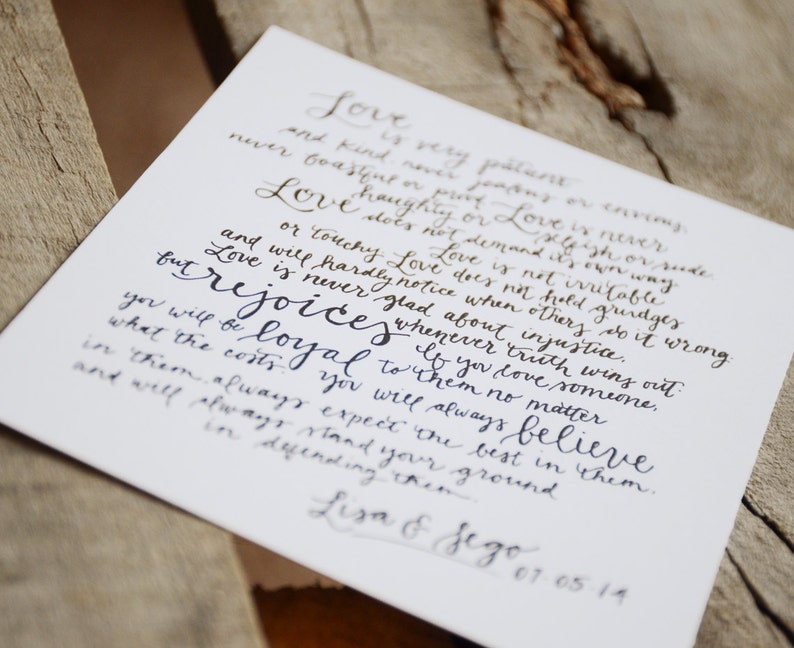 Love
is very patient
and kind, never jealous or envious,
never boastful or proud. Love is never
haughty or selfish or rude.
Love does not demand its own way
Love is not irritable
or touchy. Love does not hold grudges
and will hardly notice when others do it wrong.
Love is never glad about injustice,
but rejoices whenever truth wins out.
If you love someone,
you will be loyal to them no matter
what the costs. You will always believe
in them. always expect the best in them.
and will always stand your ground
in defending them.
Lisa & Sego
07-05-14